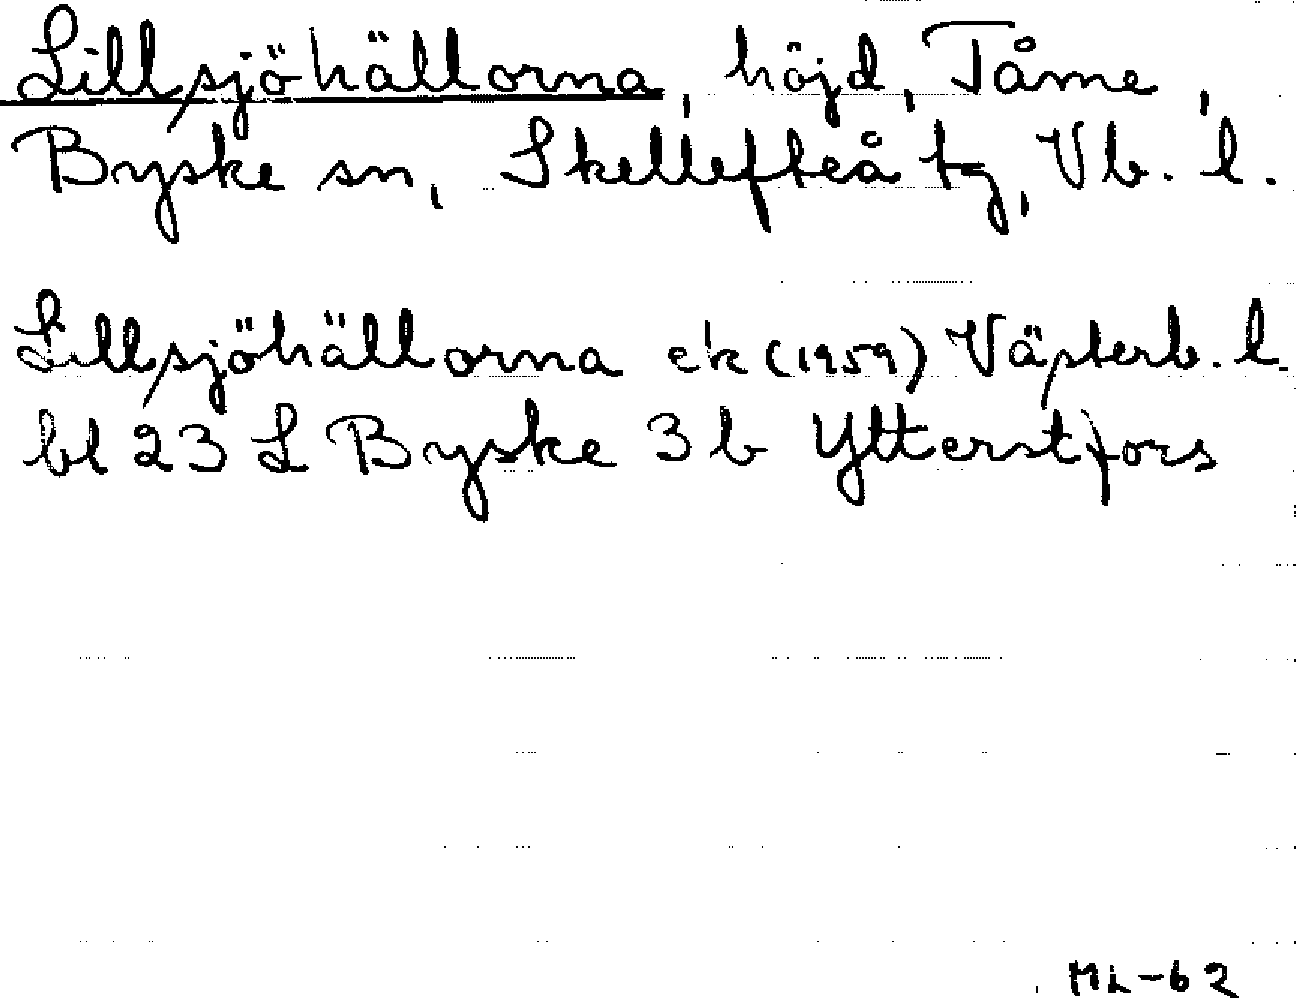 Lillsjöhällorna, höjd, Tåme,
Byske sn, Skellefteå tg, Vb. l.
Lillsjöhällorna ek (1959) Västerb. l.
bl 23 L Byske 3 b Ytterstfors
ML-62